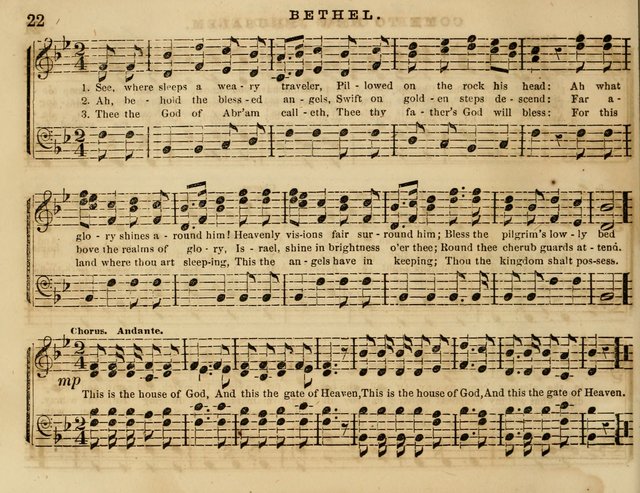 22
BETHEL.
1. See, where sleeps a wea - ry traveler, Pil - lowed on the rock his head: Ah what
2. Ah, be - hold the bless - ed an - gels, Swift on gold - en steps de - scend: Far a -
3. Thee the God of Abr'am call - eth, Thee thy fa - ther's God will bless: For this
glo - ry shines a - round him! Heavenly vis-ions fair sur - round him; Bless the pilgrim's low - ly bed
bove the realms of glo - ry, Is - rael, shine in brightness o'er thee; Round thee cherub guards at-tend.
land where thou art sleep-ing, This the an - gels have in keeping; Thou the kingdom shalt pos-sess.
Chorus. Andante.
mp
This is the house of God, And this the gate of Heaven, This is the house of God, And this the gate of Heaven.